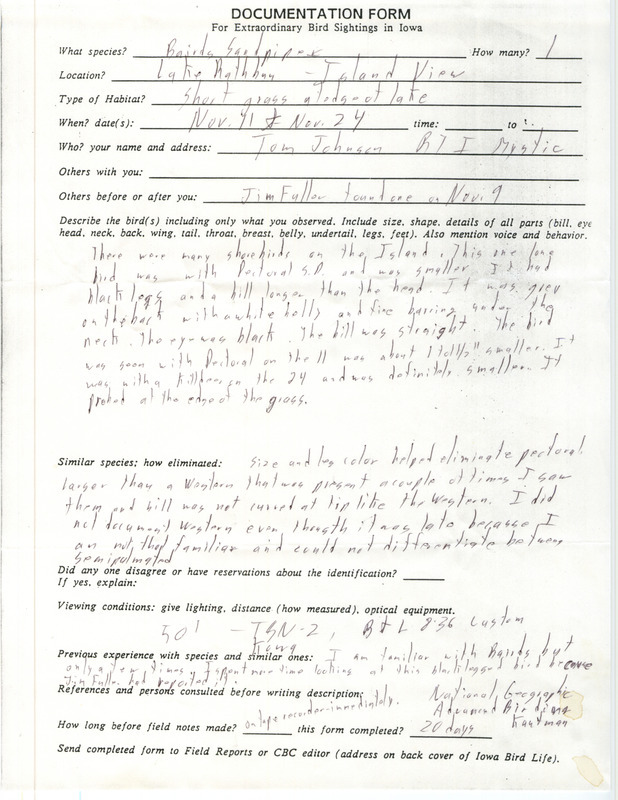 DOCUMENTATION FORM
For Extraordinary Bird Sightings in Iowa
What species? Bairds Sandpiper How many? 1
Location? Lake Rathbun - Island View
Type of Habitat? Short grass at edge of lake
When? date(s): Nov. 11 & Nov. 24 time: to :
Who? your name and address: Tom Johnson R I Mystic
Others with you:
Others before or after you: Jim Fuller found one on Nov. 9
Describe the bird(s) including only what you observed. Include size, shape, details of all parts (bill, eye
head, neck, back, wing, tail, throat, breast, belly, undertail, legs, feet). Also mention voice and behavior.
There were many shorebirds on the Island. This one lone
bird was with Pectoral S.P. and was smaller. It had
black legs and a bill longer than the head. It was grey
on the back with a white belly and fine barring under the
neck. The eye was black. The bill was straight. The bird
was seen with Pectoral on the 11 was about 1 to 1 1/2" smaller. It
was with a Killdeer on the 24 and was definitely smaller. It
probed at the edge of the grass.
Similar species; how eliminated: Size and leg color helped eliminate pectoral.
Larger than a Western that was present a couple of times I saw
them and bill was not curved at tip like the Western. I did
not document Western even though it was late because I
am not that familiar and could not differentiate between
Semipalmated
Did any one disagree or have reservations about the identification?
If yes, explain:
Viewing conditions: give lighting, distance (how measured), optical equipment.
50' - TSN-2, B & L 8-36 Custom
Kowa
Previous experience with species and similar ones: I am familiar with Bairds but
only a few times. I spent more time looking at this black legged bird because
Jim Fuller had reported it.
References and persons consulted before writing description: National Geographic
Advanced Birding
Kaufman
How long before field notes made? on tape recorder immediately. this form completed? 20 days
Send completed form to Field Reports or CBC editor (address on back cover of Iowa Bird Life).